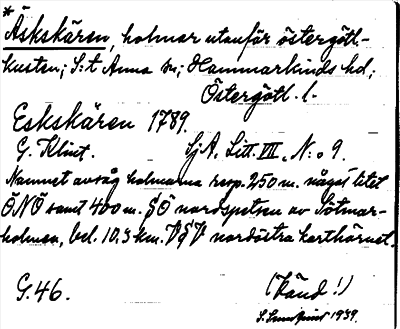 * Äskskären, holmar utanför östergötl.-
kusten; S:t Anna sn; Hammarkinds hd;
Östergötl. l.
Eskskären 1789.
G. Klint. SjA. Litt. VII, N:o 9.
Namnet avsåg holmarna resp. 250 m. något litet
ÖNÖ samt 400 m. SÖ nordspetsen av Sötmar-
holmen, bel. 10,3 km. VSV nordöstra karthörnet.
G. 46. (Känd!)
S. 1939.